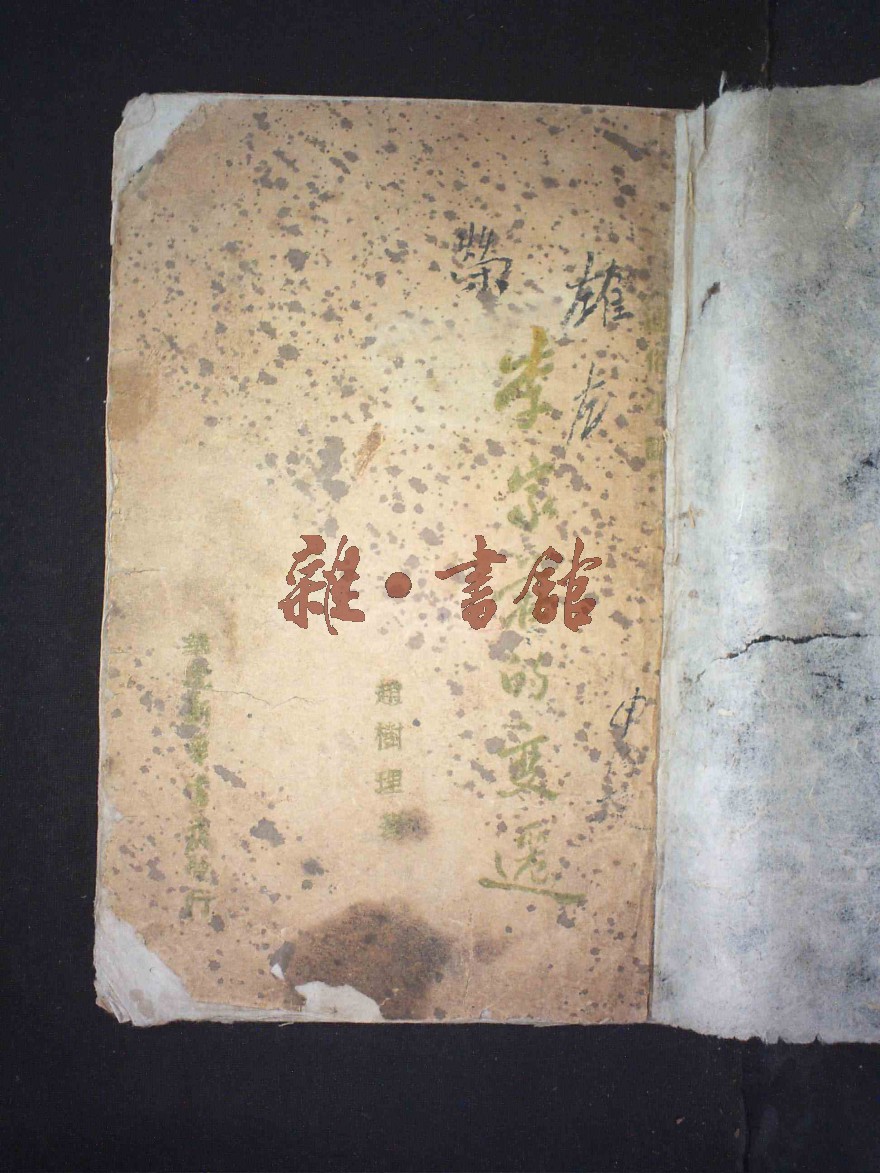 李家莊的變遷
趙樹理著
華北新華書店發行
榮
雜·書館